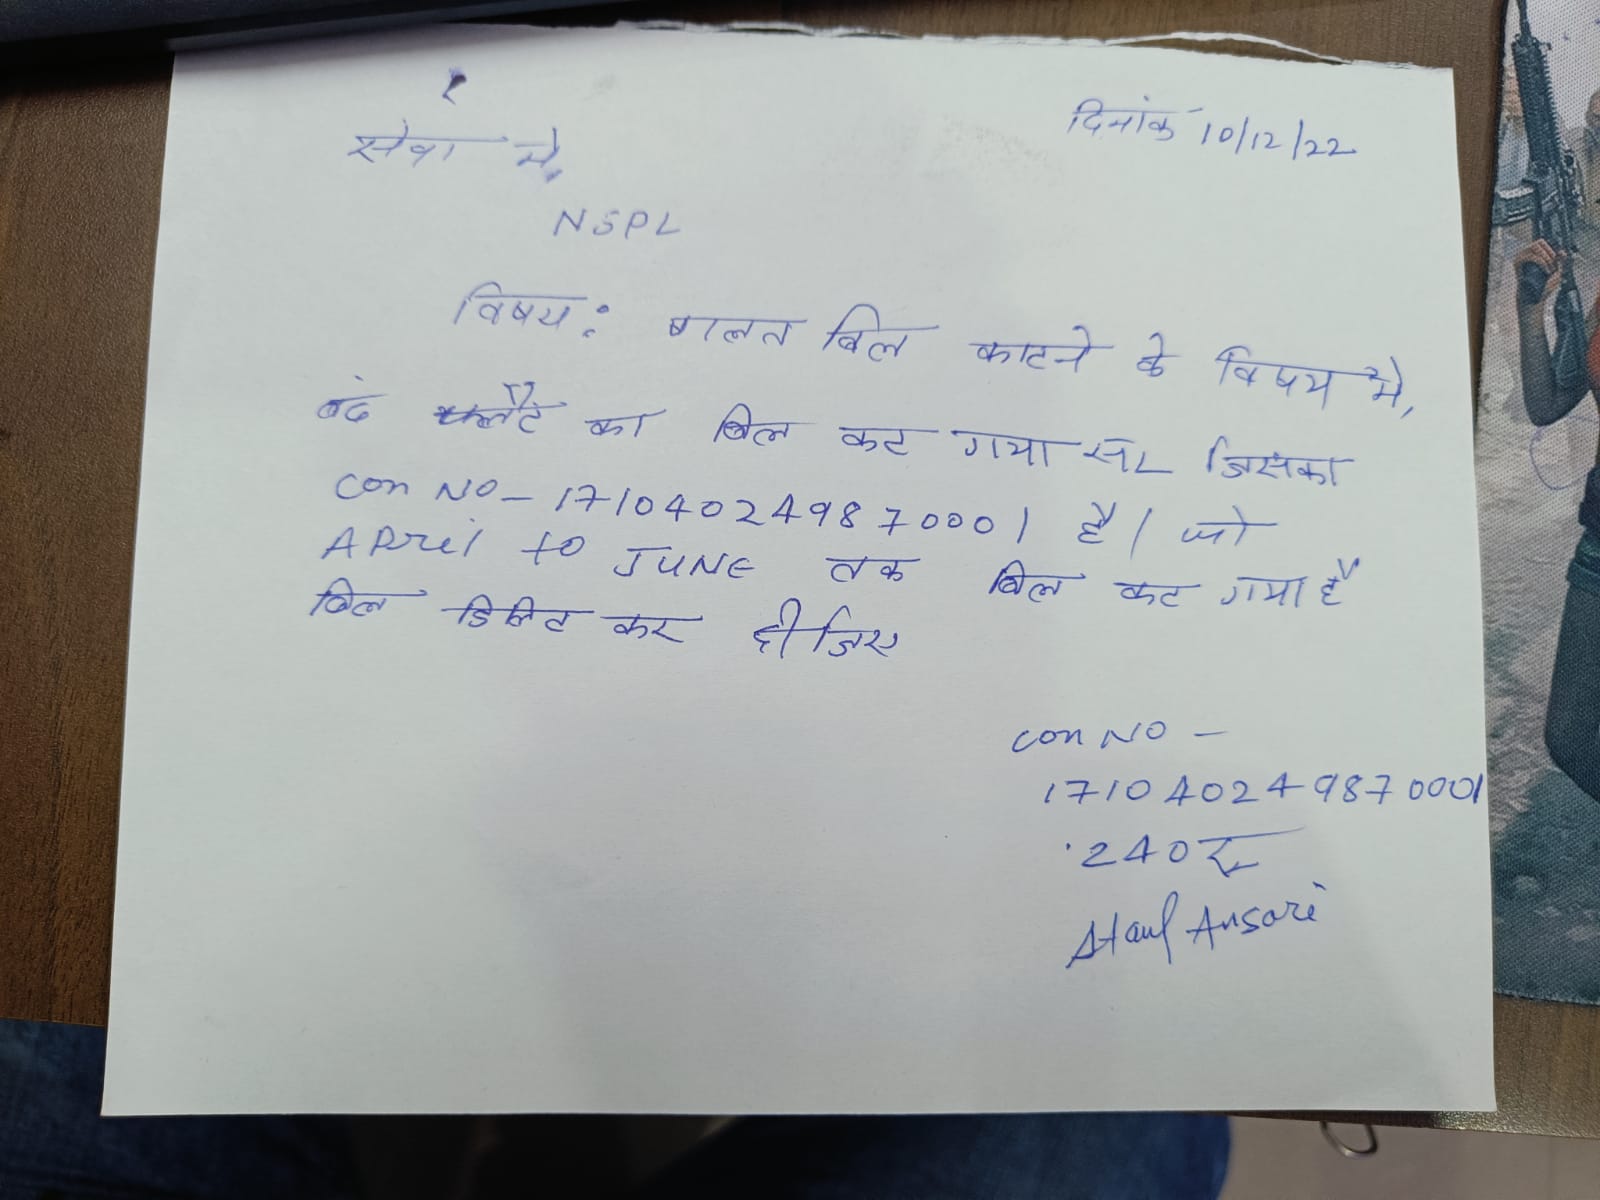 सेवा मे,
दिनांक 10/12/22
NSPL
विषय: गलत बिल काटने के विषय मे,
बंद फ्लैट का बिल कट गया जिसका
Con NO - 171040249870001 है। जो
APril to JUNE तक बिल कट गया है
बिल डिलिट कर दीजिए
Con NO -
171040249870001
240 रु
Ansari